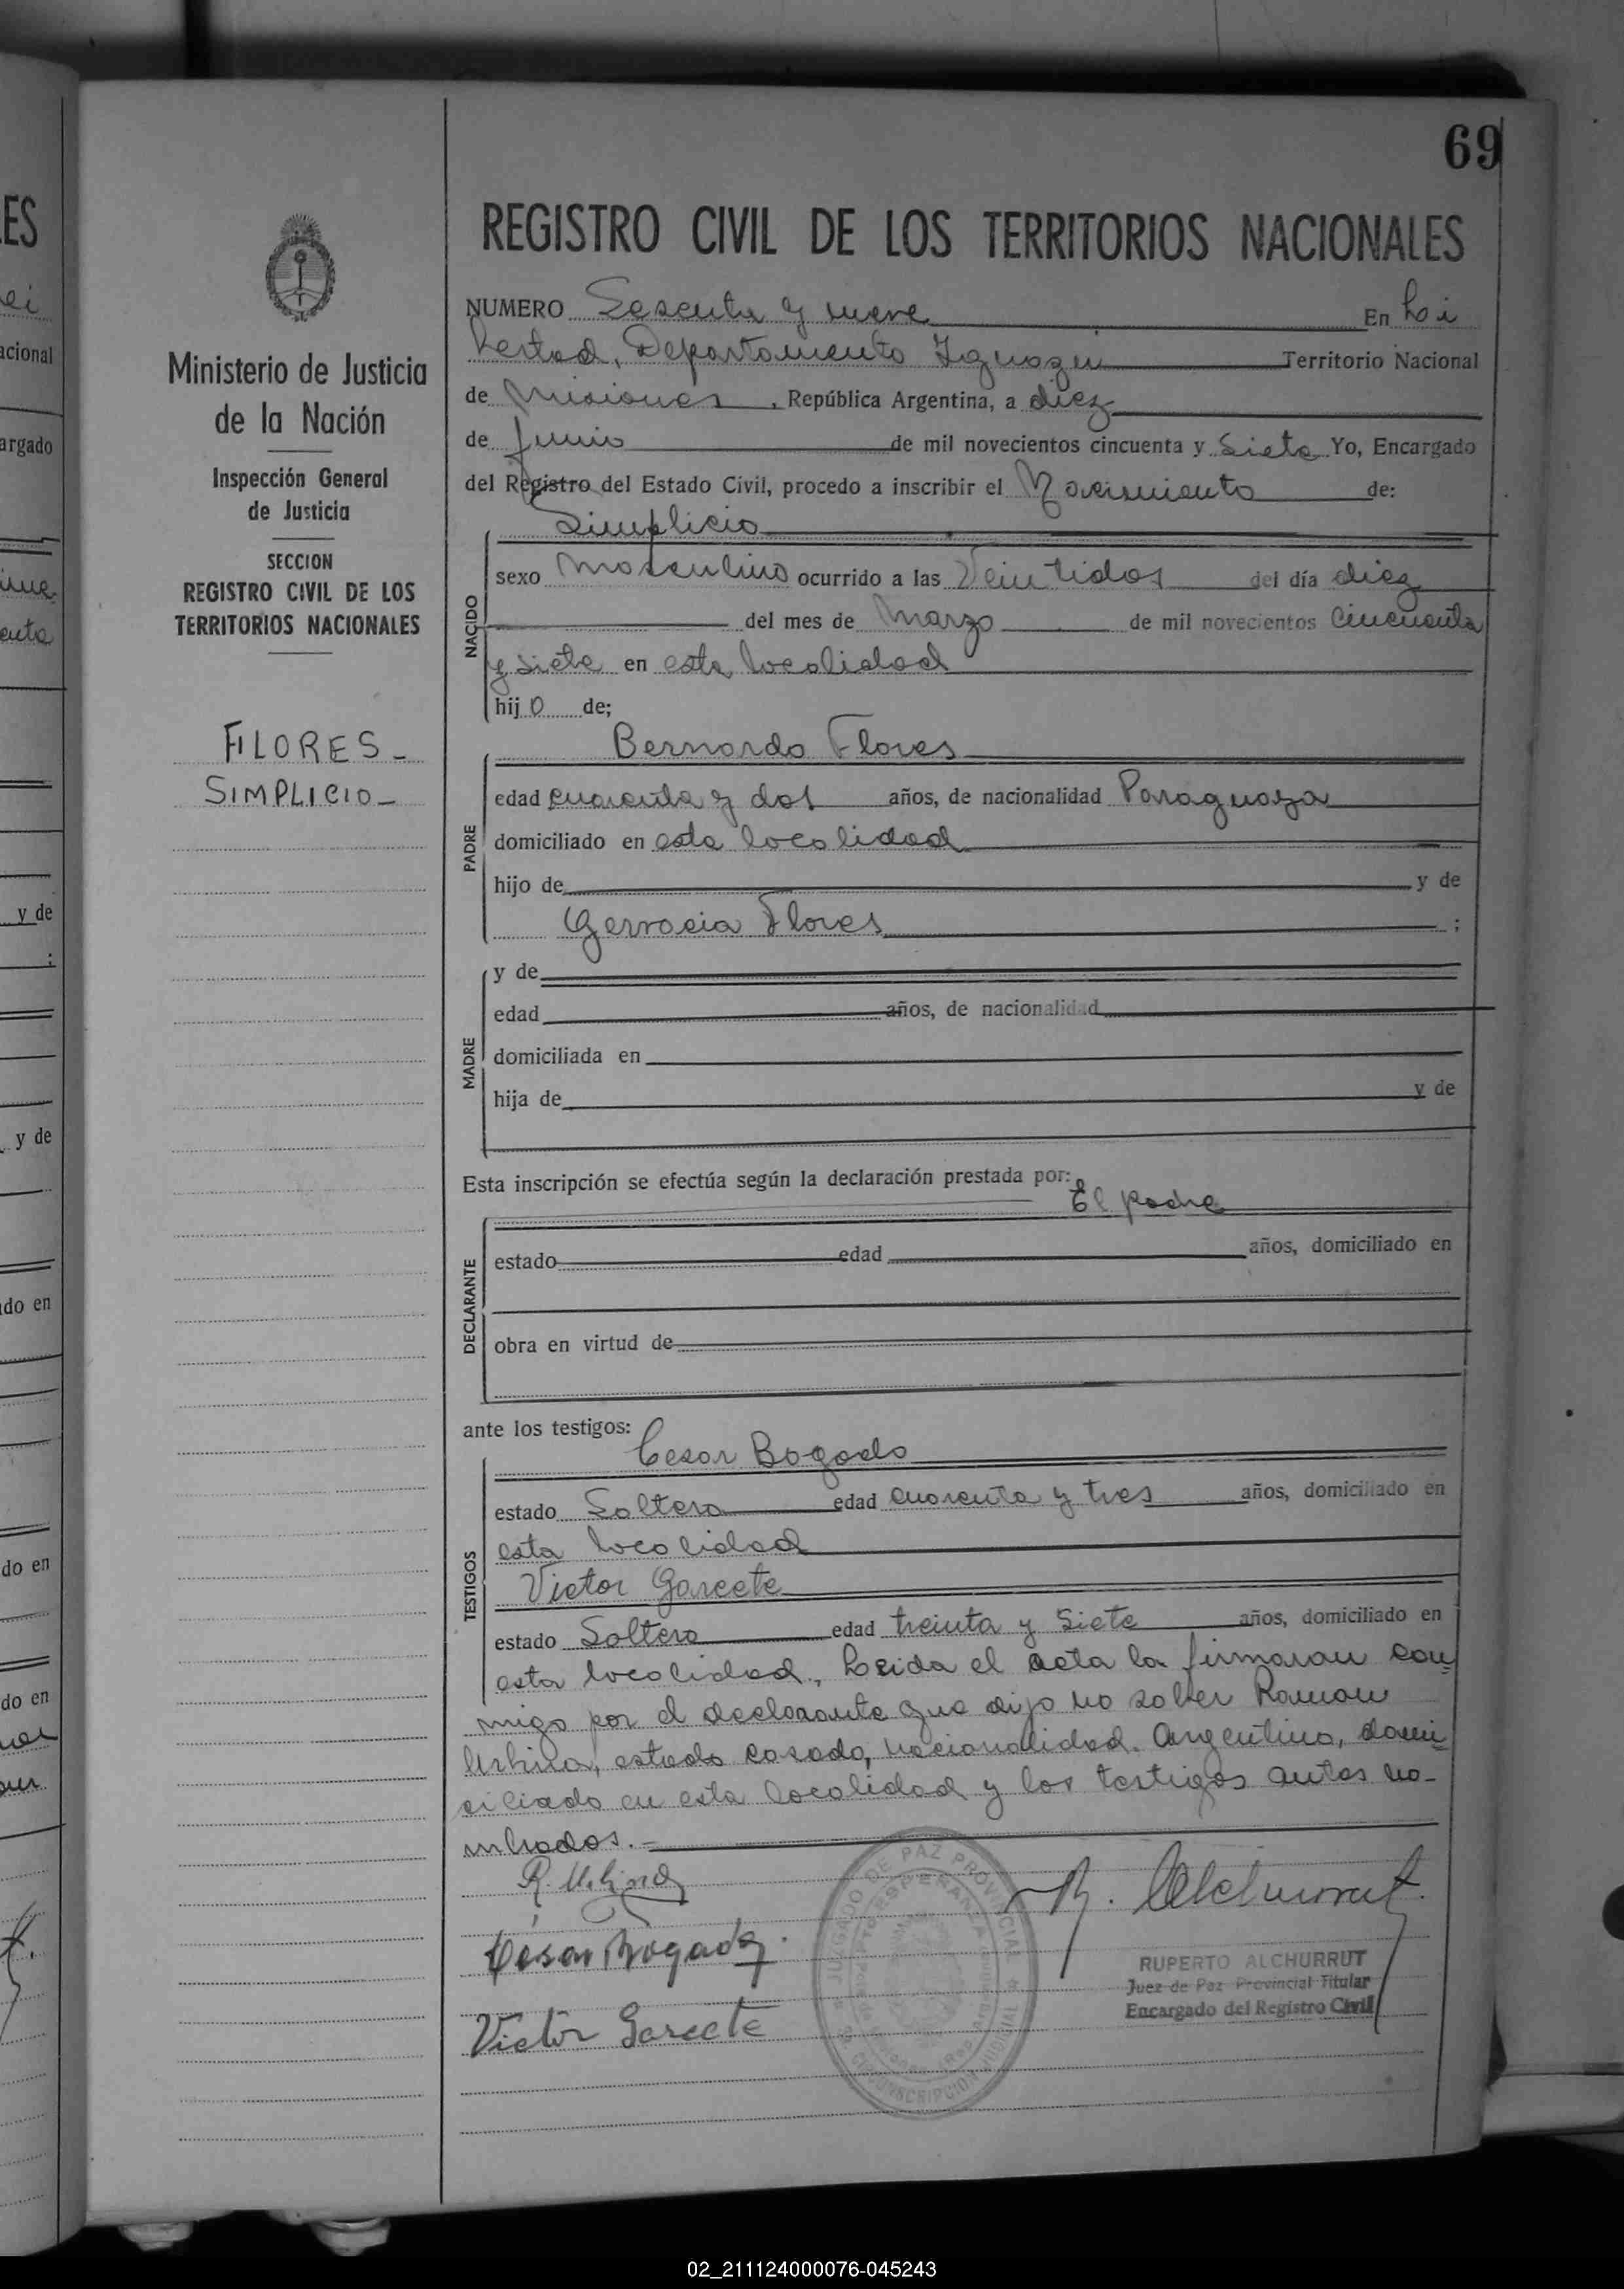 69
REGISTRO CIVIL DE LOS TERRITORIOS NACIONALES
Ministerio de Justicia
de la Nación
Inspección General
de Justicia
SECCION
REGISTRO CIVIL DE LOS
TERRITORIOS NACIONALES
FLORES-
SIMPLICIO-
NUMERO Sesenta y nueve En Li
bertad, Departamento Iguazú Territorio Nacional
de Misiones, República Argentina, a diez
de Junio de mil novecientos cincuenta y Siete Yo, Encargado
del Registro del Estado Civil, procedo a inscribir el Nacimiento de:
NACIDO
Simplicio
sexo Masculino ocurrido a las Veintidos del día diez
del mes de Marzo de mil novecientos Cincuenta
y siete en esta localidad
hijo de;
PADRE
Bernardo Flores
edad cuarenta y dos años, de nacionalidad Paraguaya
domiciliado en esta localidad
hijo de y de
Gervacia Flores ;
MADRE
y de
edad años, de nacionalidad
domiciliada en
hija de y de
Esta inscripción se efectúa según la declaración prestada por:
El padre
DECLARANTE
estado edad años, domiciliado en
obra en virtud de
ante los testigos:
TESTIGOS
Cesar Bogado
estado Soltero edad cuarenta y tres años, domiciliado en
esta localidad
Victor Garcete
estado Soltero edad treinta y Siete años, domiciliado en
esta localidad., Leida el acta la firmaron con
migo por el declarante que dijo no saber Ramon
Urbina, estado casado, nacionalidad Argentino, domi
ciliado en esta localidad y los testigos antes no-
mbrados.-
R. Urbina
César Bogado.
Victor Garcete
R. Alchurrut.
JUZGADO DE PAZ PROVINCIAL
PTO ESPERANZA
CIRCUNSCRIPCION JUDICIAL
RUPERTO ALCHURRUT
Juez de Paz Provincial Titular
Encargado del Registro Civil
02_211124000076-045243